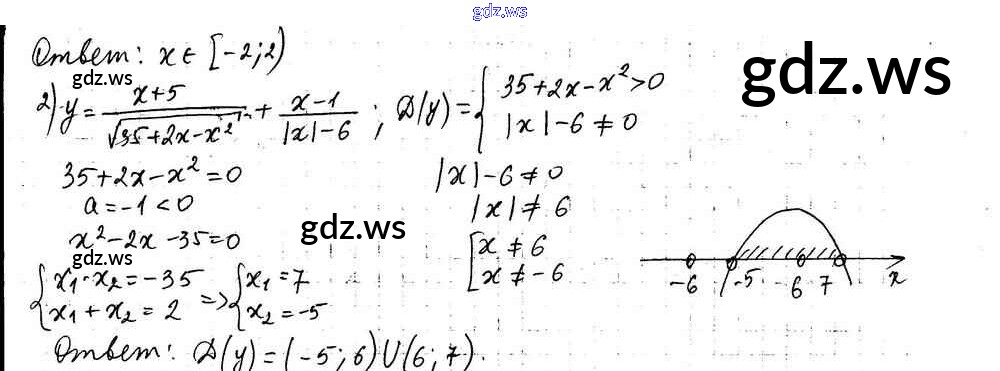 gdz.ws
Ответ: x ∈ [-2; 2)
gdz.ws
gdz.ws
2) y = (x+5)/√(35+2x-x²) + (x-1)/(|x|-6) ; D(y) = { 35+2x-x² > 0
|x| - 6 ≠ 0
35+2x-x² = 0
|x| - 6 ≠ 0
a = -1 < 0
|x| ≠ 6
x² - 2x - 35 = 0
gdz.ws
gdz.ws
[ x ≠ 6
x ≠ -6
{ x₁·x₂ = -35
x₁ + x₂ = 2
=> { x₁ = 7
x₂ = -5
-6 -5 6 7 x
Ответ: D(y) = (-5; 6) U (6; 7).